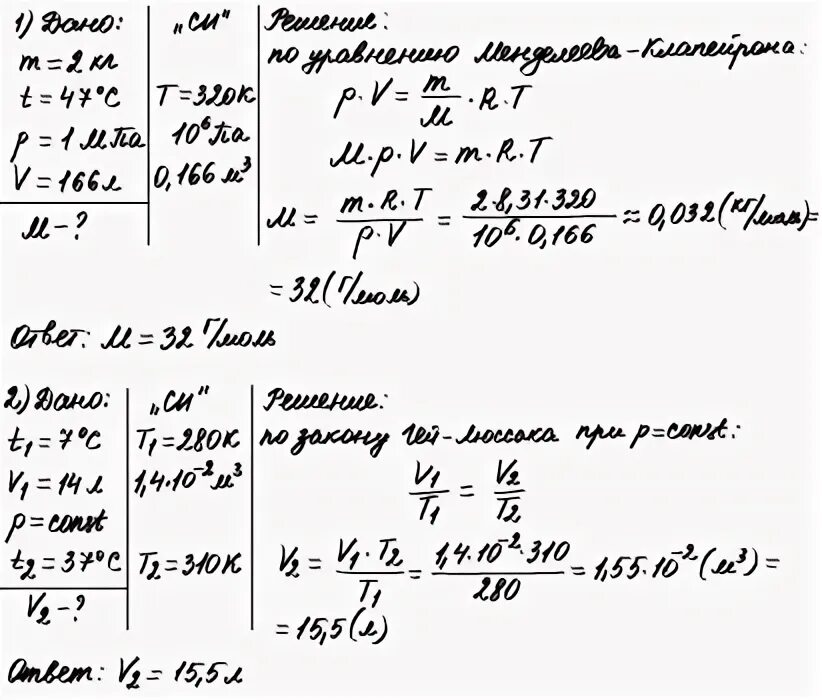 1) Дано:
m = 2 кг
t = 47°С
p = 1 МПа
V = 166 л
М - ?
„СИ"
T = 320К
10⁶ Па
0,166 м³
Решение:
по уравнению Менделеева-Клапейрона:
p·V = m/М · R·T
М·p·V = m·R·T
М = m·R·T / p·V = 2·8,31·320 / 10⁶·0,166 ≈ 0,032 (кг/моль) =
= 32 (г/моль)
Ответ: М = 32 г/моль
2) Дано:
t₁ = 7°С
V₁ = 14 л
p = const
t₂ = 37°С
V₂ - ?
„СИ"
T₁ = 280К
1,4·10⁻² м³
T₂ = 310К
Решение:
по закону Гей-Люссака при p = const:
V₁/T₁ = V₂/T₂
V₂ = V₁·T₂ / T₁ = 1,4·10⁻²·310 / 280 = 1,55·10⁻² (м³) =
= 15,5 (л)
Ответ: V₂ = 15,5 л